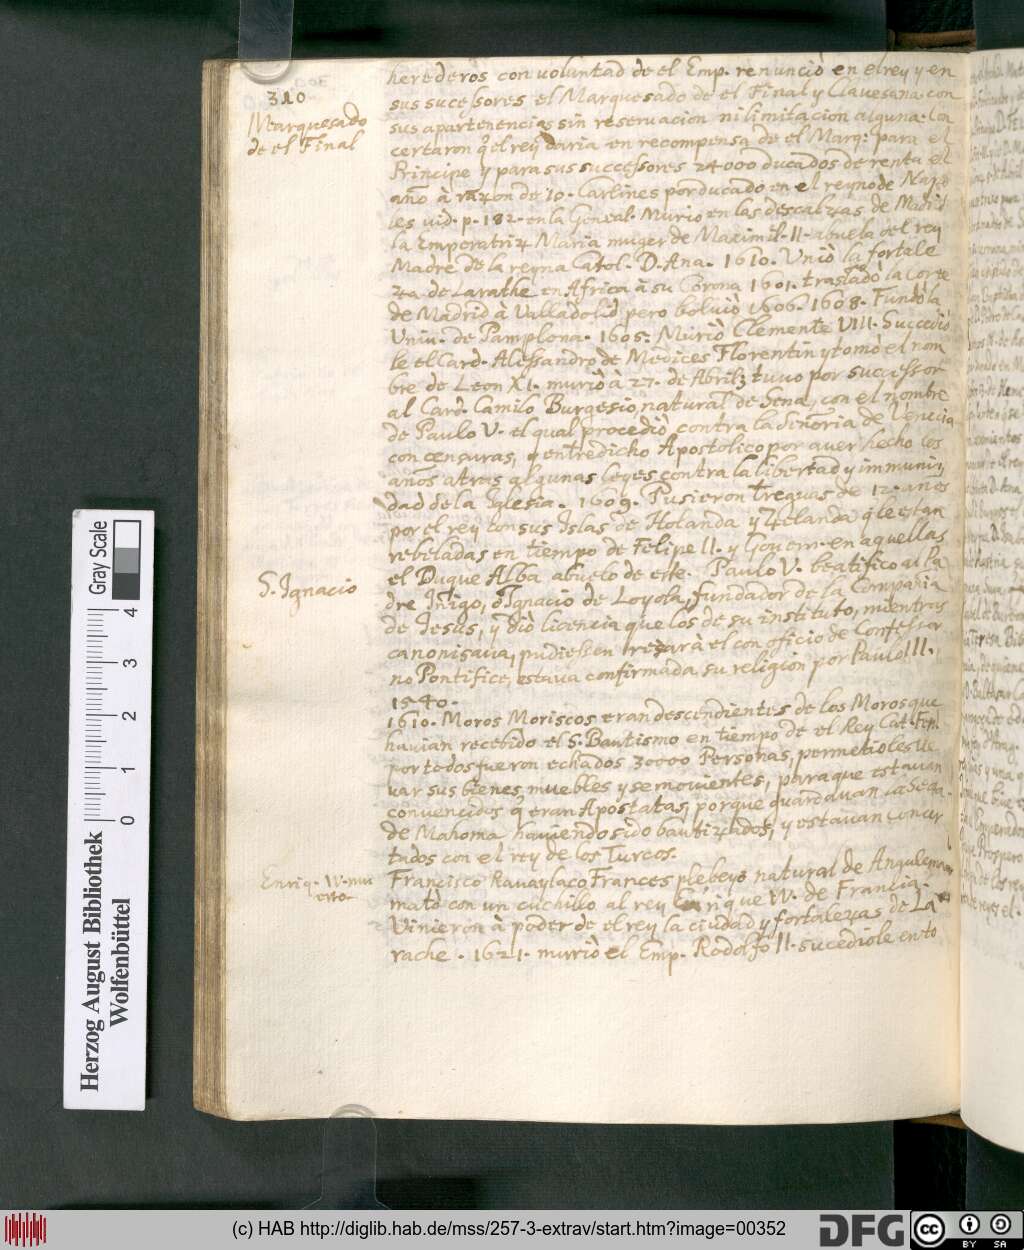 310
Marquesado
de el Final
herederos con voluntad de el Emp. renunciò en el rey y en
sus sucessores el Marquesado de el Final y Clavesana con
sus apartenencias sin reservacion ni limitacion alguna. Con
certaron q̃ el rey daria en recompensa de el Marq: para el
Principe y para sus successores 24000 ducados de renta el
año à razon de 10. Carlines por ducado en el reyno de Napo
les vid. p. 182. en la Geneal. Murio en las descalzas de Madrid
la Emperatriz Maria muger de Maximil. II. abuela del rey
Madre de la reyna Catol. D. Ana. 1610. Uniò la fortale
za de Larathe en Africa à su Corona 1601. trasladò la Corte
de Madrid à Valladolid pero bolviò 1606. 1608. Fundò la
Univ. de Pamplona. 1605. Muriò Clemente VIII. Succediò
le el Card. Alessandro de Medices Florentin y tomò el nom
bre de Leon XI. muriò à 27. de Abril; tuvo por successor
al Card. Camilo Burgesio, natural de Sena, con el nombre
de Paulo V. el qual procediò contra la Señoria de Venecia
con censuras, y entredicho Apostolico por aver hecho los
años atras algunas leyes contra la libertad y immuni
dad de la Iglesia. 1609. Pusieron treguas de 12. años
por el rey con sus Islas de Holanda y Zelanda q̃ le estan
rebeladas en tiempo de Felipe II. y Govern. en aquellas
el Duque Alba abuelo de este. Paulo V. beatifico al Pa
S. Ignacio
dre Iñigo, ò Ignacio de Loyola, fundador de la Compañia
de Jesus, y diò licencia que los de su instituto, mientras
canonisava, pudiessen rezarà el con officio de Confessor
no Pontifice, estava confirmada su religion por Paulo III.
1540.
1610. Moros Moriscos eran descendientes de los Moros que
havian recebido el S. Bautismo en tiempo de el Rey Cat. Fern.
por todos fueron echados 30000 Personas, permetioles lle
var sus bienes muebles y se movientes, para que estavan
convencidos q̃ eran Apostatas, porque guardavan la Secta
de Mahoma haviendo sido bautizados, y estavan concer
tados con el rey de los Turcos.
Enriq. IV. mu
erto
Francisco Ravaylaco Frances plebeyo natural de Angulema
matò con un cuchillo al rey Enrique IV. de Francia.
Vinieron à poder de el rey la ciudad y fortalezas de La
rache. 1621. murriò el Emp. Rodolfo II. sucediole en to
Herzog August Bibliothek
Wolfenbüttel
0 1 2 3 4
Gray Scale
(c) HAB http://diglib.hab.de/mss/257-3-extrav/start.htm?image=00352
DFG
cc
BY SA